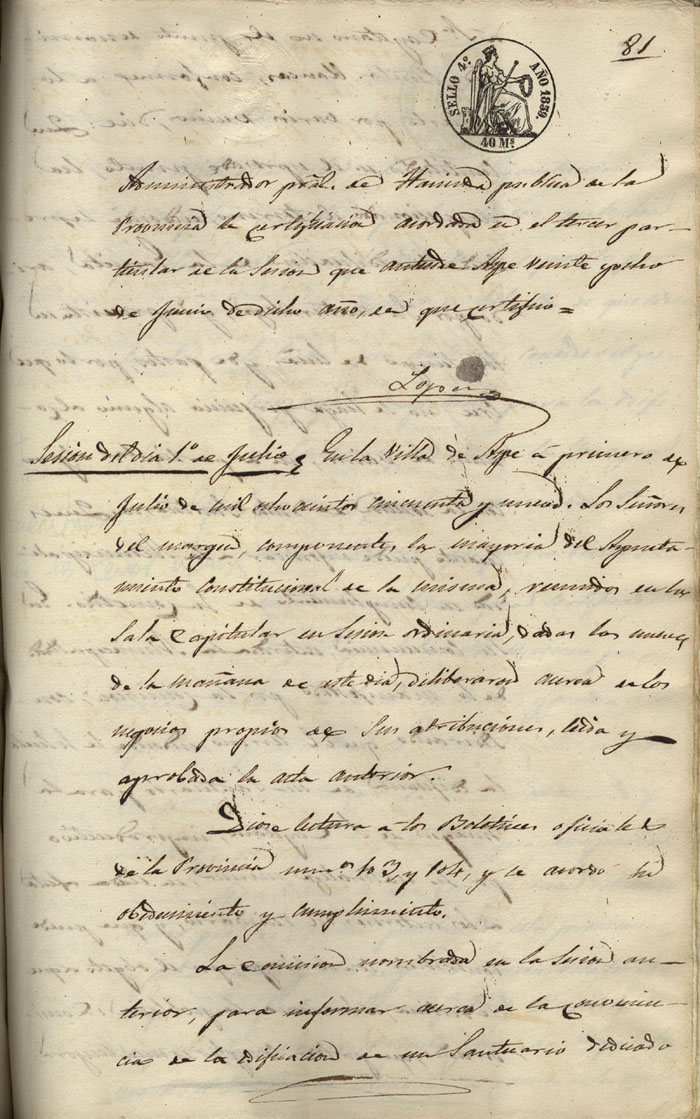 81
SELLO 4º AÑO 1859.
40 Ms
Administrador pral. de Hacienda publica de la
Provincia la certificacion acordada en el tercer par-
ticular de la Sesion que antecede Aspe veinte y ocho
de Junio de dicho año, de que certifico =
Lopez
Sesion del dia 1.º de Julio, En la Villa de Aspe á primero de
Julio de mil ochocientos cincuenta y nueve. Los Señores
del margen, componentes la mayoria del Ayunta-
miento Constitucional de la misma, reunidos en la
Sala Capitular en Sesion ordinaria, dadas las nueve
de la mañana de este dia, deliberaron acerca de los
negocios propios de sus atribuciones, leida y
aprobada la acta anterior.
Diose lectura a los Boletines oficiales
de la Provincia numos 103, y 104, y se acordo su
obedecimiento y cumplimiento.
La Comision nombrada en la Sesion an-
terior, para informar acerca de la convenien-
cia de la edificacion de un Santuario dedicado